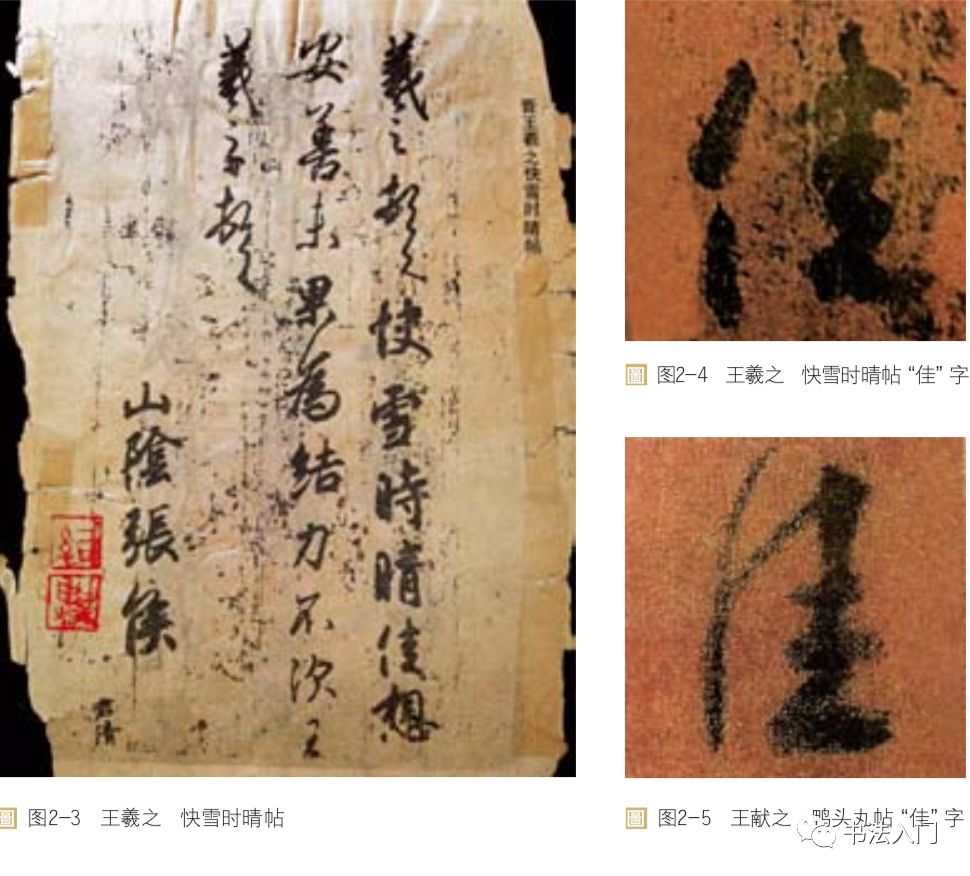 晋王羲之快雪时晴帖
羲之頓首快雪時晴佳想
安善未果為結力不次王
羲之頓首
山陰張侯
圖 图2-4 王羲之 快雪时晴帖 “佳” 字
佳
圖 图2-3 王羲之 快雪时晴帖
圖 图2-5 王献之 鸭头丸帖 “佳” 字
佳
书法入门